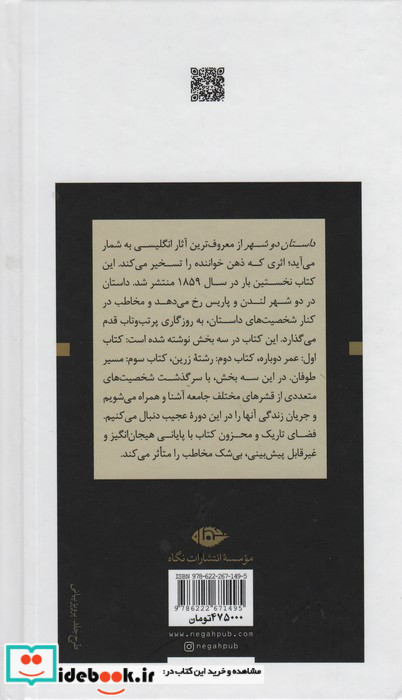 داستان دو شهر از معروف‌ترین آثار انگلیسی به شمار
می‌آید؛ اثری که ذهن خواننده را تسخیر می‌کند. این
کتاب نخستین بار در سال ۱۸۵۹ منتشر شد. داستان
در دو شهر لندن و پاریس رخ می‌دهد و مخاطب در
کنار شخصیت‌های داستان، به روزگاری پرتب‌وتاب قدم
می‌گذارد. این کتاب در سه بخش نوشته شده است: کتاب
اول: عمر دوباره، کتاب دوم: رشتهٔ زرین، کتاب سوم: مسیر
طوفان. در این سه بخش، با سرگذشت شخصیت‌های
متعددی از قشرهای مختلف جامعه آشنا و همراه می‌شویم
و جریان زندگی آنها را در این دورهٔ عجیب دنبال می‌کنیم.
فضای تاریک و محزون کتاب با پایانی هیجان‌انگیز و
غیرقابل پیش‌بینی، بی‌شک مخاطب را متأثر می‌کند.
مؤسسهٔ انتشارات نگاه
ISBN 978-622-267-149-5
9 786222 671495
۴۷۵۰۰۰تومان
www.negahpub.com
negahpub
طرح جلد: پرویز بیانی
مشاهده و خرید این کتاب در:
idebook.ir